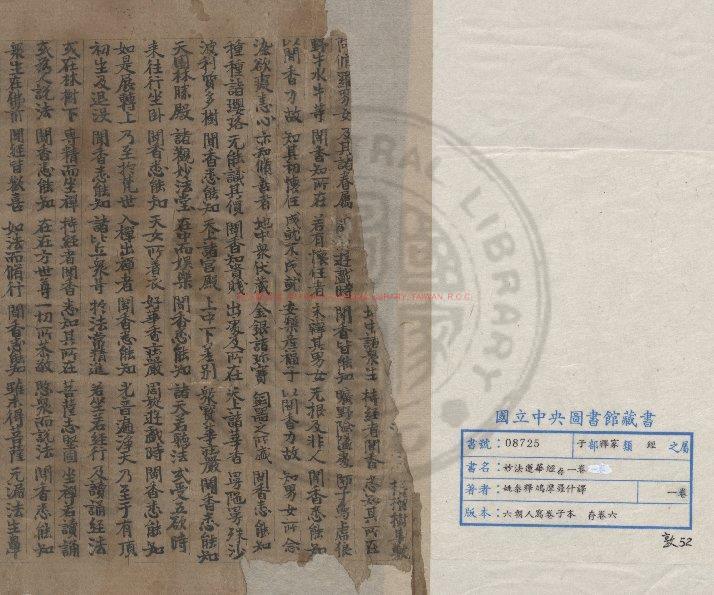 土中諸衆生 持經者聞香 悉知其所在
阿脩羅男女 及其諸眷屬 遊戲時 聞香皆能知 曠野險隘處 師子象虎狼
野牛水牛等 聞香知所在 若有懷任者 未辯其男女 无根及非人 聞香悉能知
以聞香力故 知其初懷任 成就不成就 安樂產福子 以聞香力故 知男女所念
染欲癡恚心 亦知脩善者 地中衆伏藏 金銀諸珎寶 銅器之所盛 聞香悉能知
種種諸瓔珞 无能識其價 聞香知貴賤 出處及所在 天上諸華香 曼陁曼殊沙
波利質多樹 聞香悉能知 天上諸宮殿 上中下差別 衆寶華莊嚴 聞香悉能知
天園林勝殿 諸觀妙法堂 在中而娛樂 聞香悉能知 諸天若聽法 或受五欲時
來往行坐卧 聞香悉能知 天女所著衣 好華香莊嚴 周旋遊戲時 聞香悉能知
如是展轉上 乃至於梵世 入禪出禪者 聞香悉能知 光音遍淨天 乃至于有頂
初生及退没 聞香悉能知 諸比丘衆等 於法常精進 若坐若經行 及讀誦經法
或在林樹下 專精而坐禪 持經者聞香 悉知其所在 菩薩志堅固 坐禪若讀誦
或為人說法 聞香悉能知 在在方世尊 一切所恭敬 愍衆而說法 聞香悉能知
衆生在佛前 聞經皆歡喜 如法而脩行 聞香悉能知 雖未得菩薩 无漏法生鼻
國立中央圖書館藏書
書號：08725 子部釋家類 經 之屬
書名：妙法蓮華經存一卷
著者：姚秦釋鳩摩羅什譯 一卷
版本：六朝人寫卷子本 存卷六
敦52
CENTRAL LIBRARY
LIBRARY, TAIWAN, R.O.C.